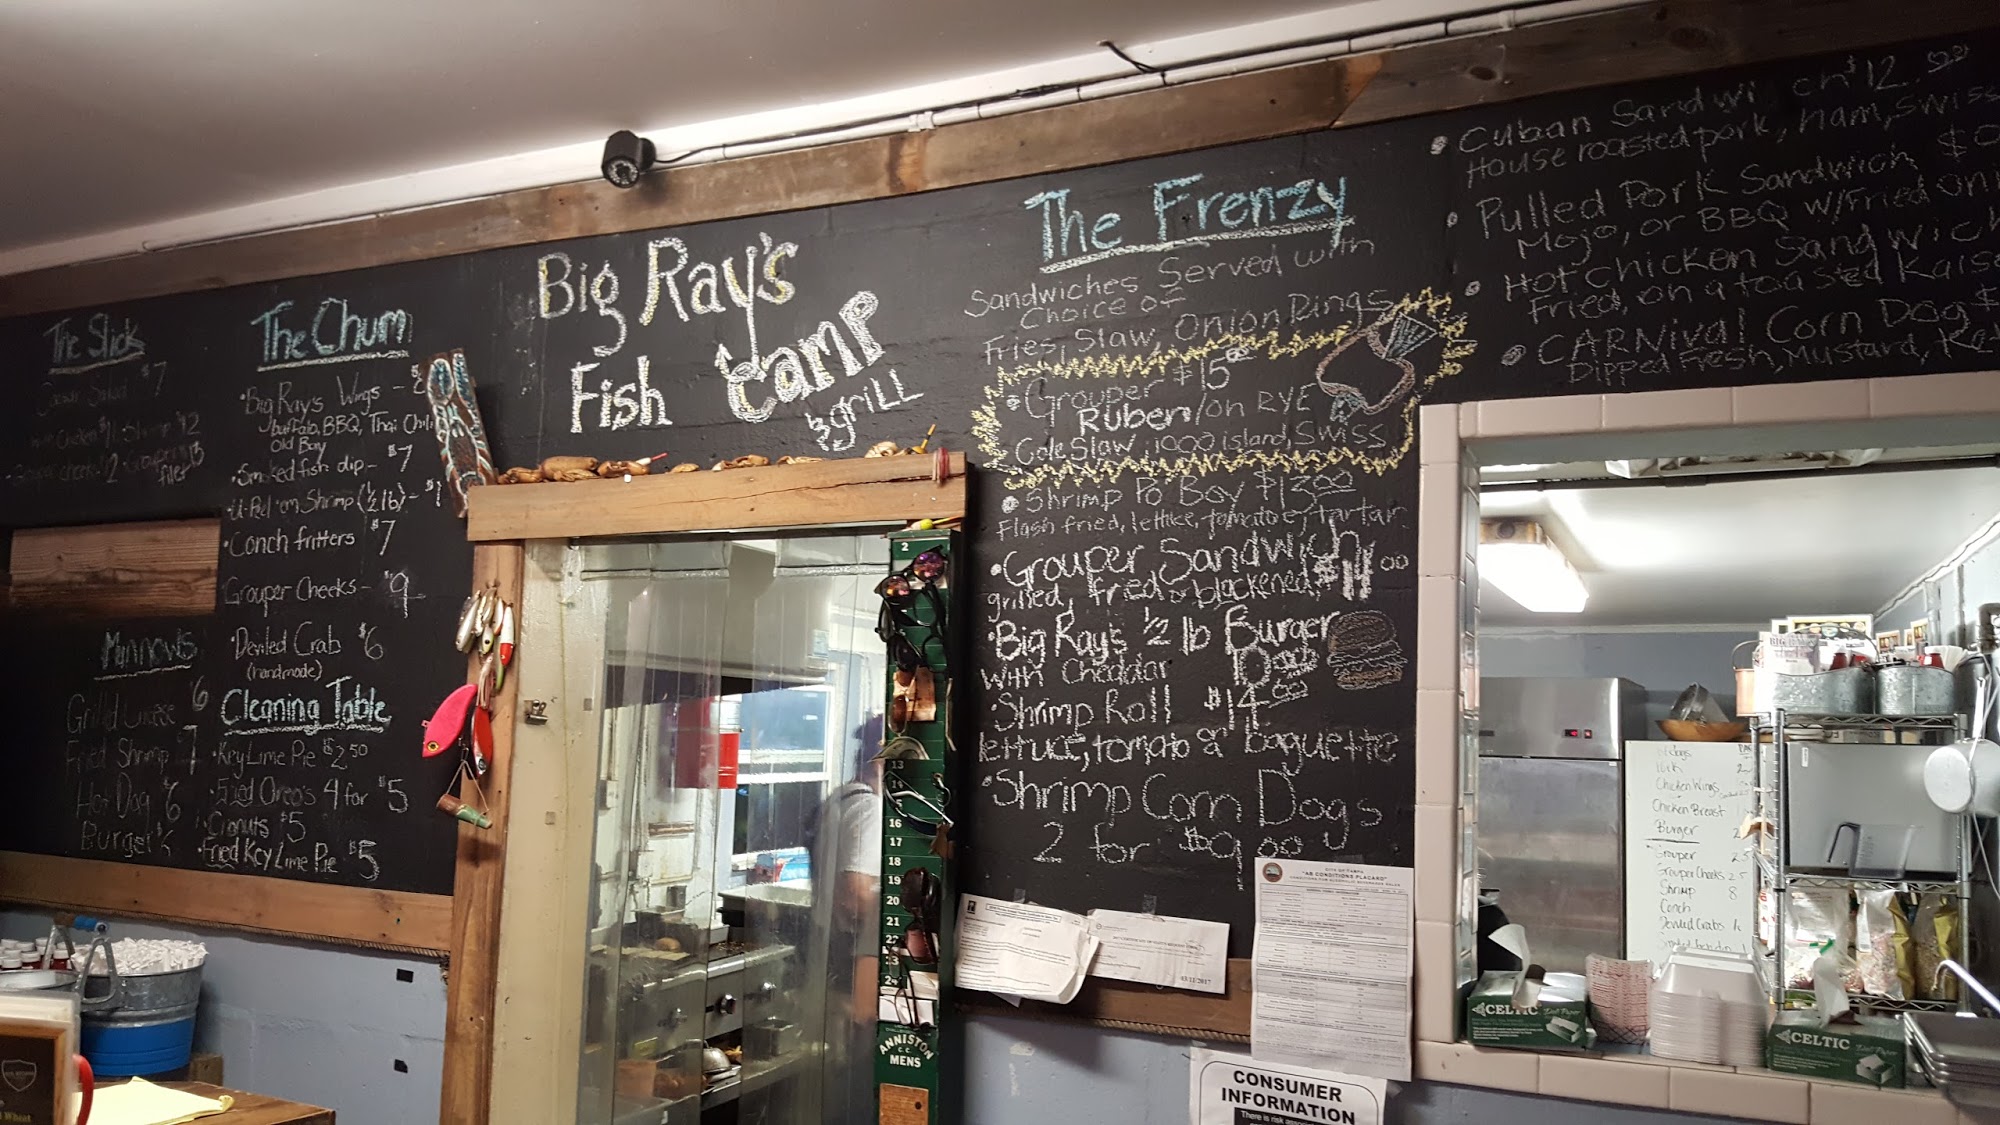 The Slick
$7
The Chum
• Big Ray's Wings -
buffalo, BBQ, Thai Chili
Old Bay
• Smoked fish dip - $7
• U-Peel-'em Shrimp (1/2 lb) - $1
• Conch fritters $7
Grouper Cheeks - $9
• Deviled Crab $6
(handmade)
Cleaning Table
• Key Lime Pie $2.50
• Fried Oreo's 4 for $5
• Cronuts $5
• Fried Key Lime Pie $5
Minnows
Grilled Cheese $6
Fried Shrimp $7
Hot Dog $6
Burger
Big Ray's
Fish Camp
& grill
The Frenzy
Sandwiches Served with
Choice of
Fries, Slaw, Onion Rings
• Grouper $15
Ruben / on RYE
Cole Slaw, 1000 island, Swiss
• Shrimp Po Boy $13.00
Flash fried, lettuce, tomatoe, tartar
• Grouper Sandwich
grilled, fried or blackened, $14.00
• Big Ray's 1/2 lb Burger
with Cheddar
• Shrimp Roll $14.00
lettuce, tomato & baguette
• Shrimp Corn Dogs
2 for $9.00
• Cuban Sandwich $12.00
House roasted pork, ham, swiss
• Pulled Pork Sandwich
Mojo, or BBQ w/Fried Oni
• Hot Chicken Sandwich
Fried, on a toasted Kaise
• CARNival Corn Dog $
Dipped Fresh, Mustard, Ke
2
13
16
17
18
19
20
21
22
23
24
ANNISTON
C.C.
MENS
CITY OF TAMPA
"AB CONDITIONS PLACARD"
03/11/2017
CONSUMER
INFORMATION
Chicken Wings
Chicken Breast
Burger
Grouper 2.5
Grouper Cheeks 2.5
Shrimp 8
Conch
Deviled Crabs
CELTIC
CELTIC
Wheat